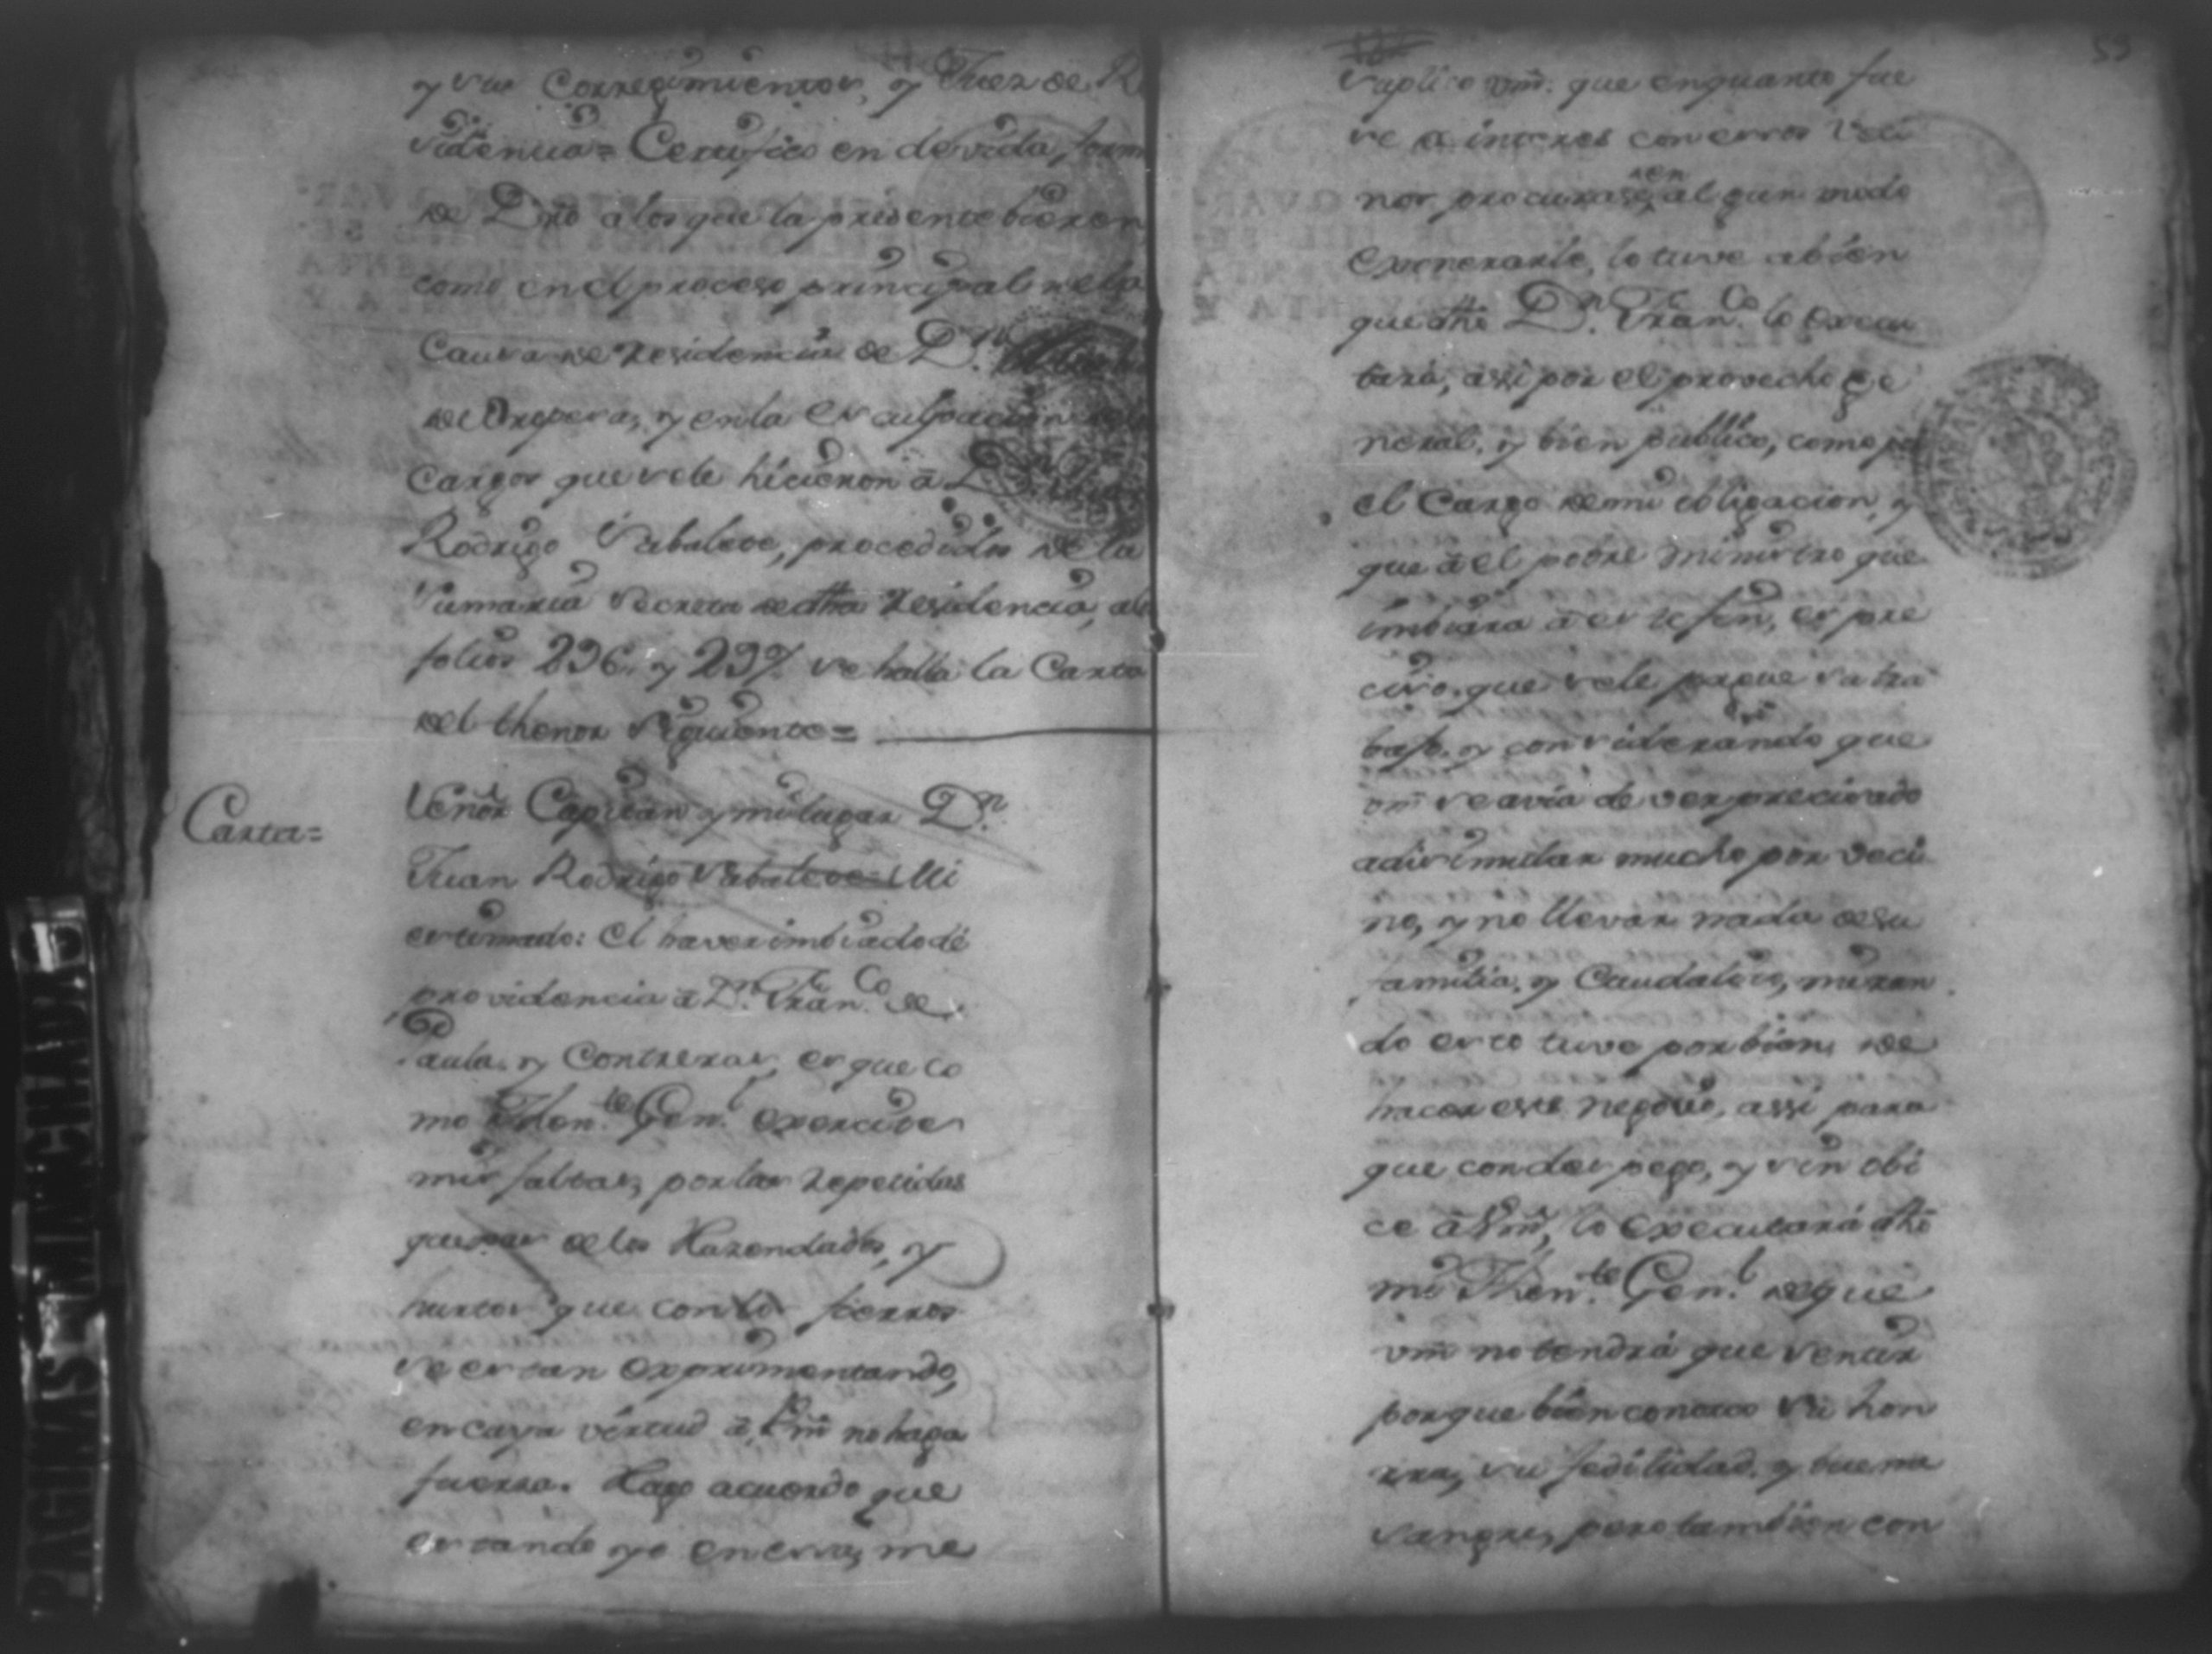 y sus Corregimientos, y Juez de Re
sidencia = Certifico en devida forma
de Dro a los que la presente bieren
como en el proceso principal de la
Causa de residencia de Dn.
de Oropesa, y en la exculpacion de
Cargos que se le hicieron á Dn. Juan
Rodrigo Sabalete, procedidos de la
Sumaria Secreta de dha residencia, a
folios 296. y 297. se halla la Carta
del thenor siguiente =
Carta =
Señor Capitan y mi lugar Dn.
Juan Rodrigo Sabalete = Mi
estimado: El haver imbiado de
providencia á Dn. Franco. de
Paula, y Contreras, es que co
mo Thente. Genl. exercite
mis faltas, por las repetidas
quexas de los Hazendados, y
hurtos que con los fierros
se estan experimentando,
en cuya virtud á Vm̃ no haga
fuerza. Hago acuerdo que
estando yo en essa, me
suplico vm̃. que en quanto fue
se á interes con essos Veci
nos procurasen al gun modo
exonerarle, lo tuve abien
que dho Dn. Franco. lo execu
tara, assi por el provecho ge
neral, y bien publico, como por
el Cargo de mi obligacion, y
que á el pobre ministro que
imbiara á este fin, es pre
ciso, que se le pague su tra
bajo. y considerando que
vm̃ se avia de ver precisado
adisimular mucho por veci
no, y no llevar nada de su
familia, y Caudalois, miran
do esto tuve por bien, de
hacer este negocio, assi para
que con despego, y sin obi
ce á Vm̃, lo executará dho
mi Thente. Genl. de que
vm̃ no tendrá que sentir
porque bien conozco su hon
rra, su fedilidad, y buena
sangre, pero tambien con
55
PAGINAS MANCHADAS